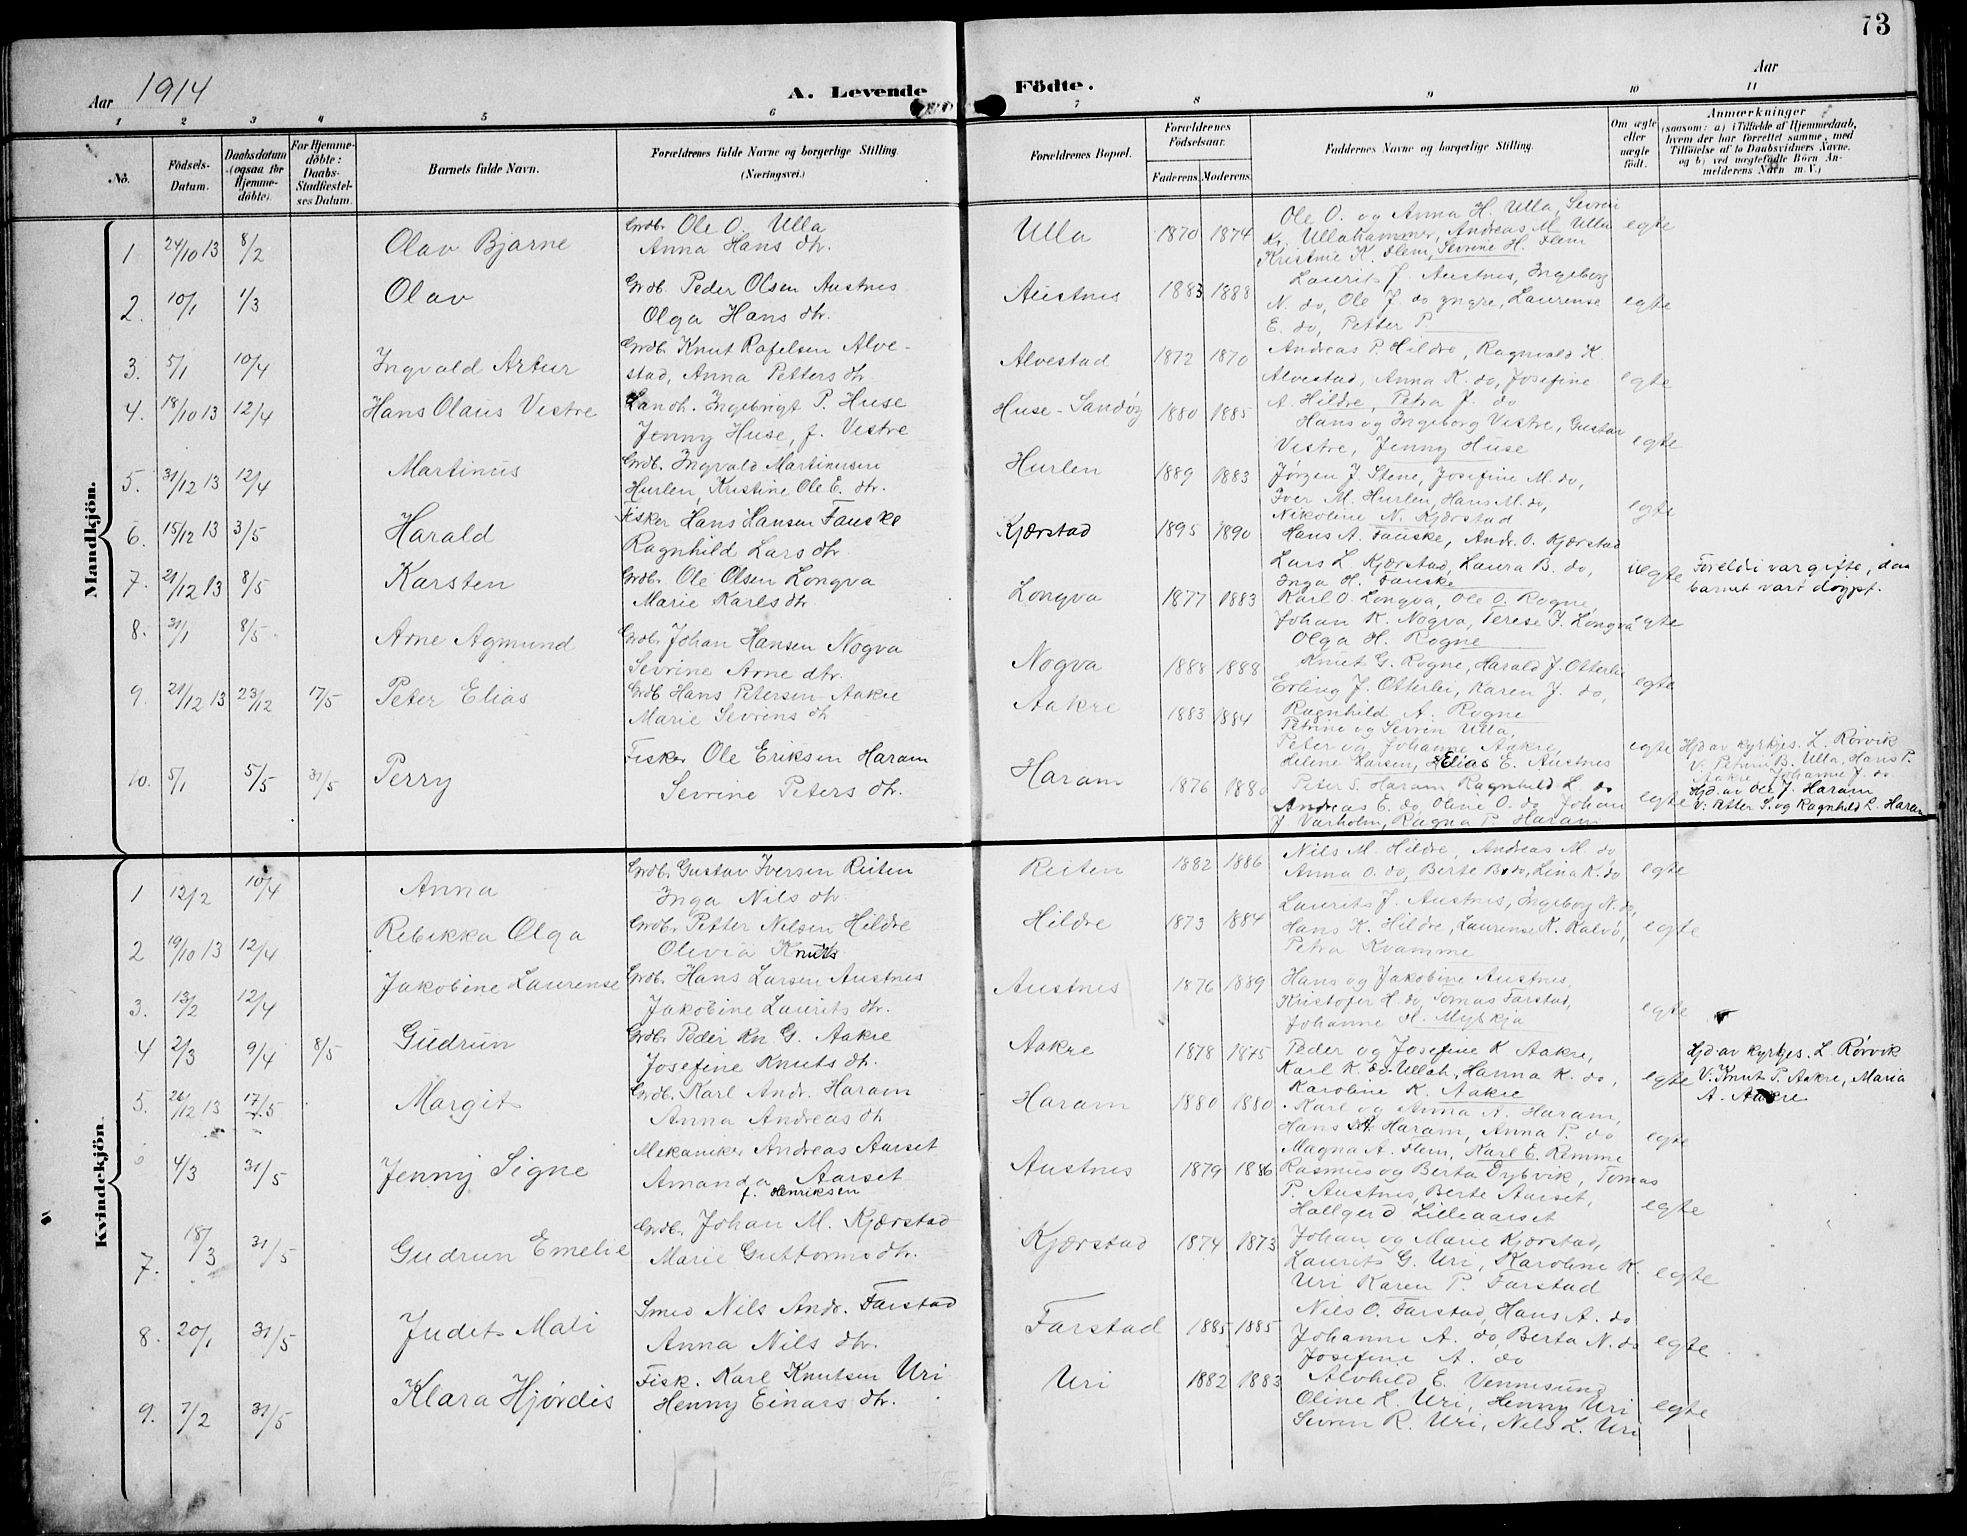 73
Aar 1914
A. Levende Födte.
Aar
1 2 3 4 5 6 7 8 9 10 11
No.
Födsels-Datum.
Daabsdatum (ogsaa for Hjemme-döbte)
For Hjemme-döbte: Daabs-Stadfæstel-ses Datum.
Barnets fulde Navn.
Forældrenes fulde Navne og borgerlige Stilling. (Næringsvei.)
Forældrenes Bopæl.
Forældrenes Födselsaar.
Faderens. Moderens.
Faddernes Navne og borgerlige Stilling.
Om ægte eller uægte födt.
Anmærkninger
(saasom: a) i Tilfælde af Hjemmedaab, hvem der har forrettet samme, med Tilföielse af to Daabsvidners Navne, og b) ved uægtefödte Börn An-melderens Navn m. V.)
Mandkjön.
1 24/10 13 8/2 Olav Bjarne
Grdb. Ole O. Ulla
Anna Hans dtr.
Ulla 1870 1874
Ole O. og Anna H. Ulla, Sevrin
Kr. Ullakammer, Andreas M Ulla
Kristine K. Flem, Sevrine H. Flem
egte
2. 10/1 1/3 Olav
Grdb. Peder Olsen Austnes
Olga Hans dtr.
Austnes 1883 1888
Laurits J. Austnes, Ingeborg
N. do, Ole J. do yngre, Laurense
E. do, Petter P.
egte
3. 5/1 10/4 Ingvald Artur
Grdb. Knut Rafelsen Alve-
stad, Anna Petters dtr.
Alvestad 1872 1870
Andreas P. Hildre, Ragnvald K.
Alvestad, Anna K. do, Josefine
A. Hildre, Petra J. do
egte
4. 18/10 13 12/4 Hans Olaus Vestre
Landh. Ingebrigt P. Huse
Jenny Huse, f. Vestre
Huse-Sandøy 1880 1885
Hans og Ingeborg Vestre, Gustav
Vestre, Jenny Huse
egte
5. 31/12 13 12/4 Martinus
Grdb. Ingvald Martinusen
Hurlen, Kristine Ole E. dtr.
Hurlen 1889 1883
Jørgen J. Stene, Josefine M. do,
Iver M. Hurlen, Hans M. do,
Nikoline N. Kjærstad
egte
6. 15/12 13 3/5 Harald
Fisker Hans Hansen Fauske
Ragnhild Lars dtr.
Kjærstad 1895 1890
Hans A. Fauske, Andr. O. Kjærstad
Lars L. Kjærstad, Laura B. do,
Inga H. Fauske
uegte
Foreldri var gifte, daa
barnet vart døypt.
7. 21/12 13 8/5 Karsten
Grdb. Ole Olsen Longva
Marie Karls dtr.
Longva 1877 1883
Karl O. Longva, Ole O. Rogne,
Johan K. Nogva, Terese J. Longva
Olga H. Rogne
egte
8. 31/1 8/5 Arne Agmund
Grdb. Johan Hansen Nogva
Sevrine Arne dtr.
Nogva 1888 1888
Knut G. Rogne, Harald J. Otterlei
Erling J. Otterlei, Karen J. do,
Ragnhild A. Rogne
egte
9. 21/12 13 23/12 17/5 Peter Elias
Grdb Hans Petersen Aakre
Marie Sevrins dtr
Aakre 1883 1884
Petrine og Sevrin Ulla,
Peter og Johanne Aakre,
Helene Larsen, Elias E. Austnes
egte
Hjd av kyrkjes. L. Rørvik
V: Petrine B. Ulla, Hans P.
Aakre, Johanne J. do
10. 5/1 5/5 31/5 Perry
Fisker Ole Eriksen Haram
Sevrine Peters dtr.
Haram 1876 1880
Peter S. Haram Ragnhild L. do
Andreas E. do, Oline O. do, Johan
J. Varholm, Ragna P. Haram
egte
Hjd. av Ole J. Haram
V: Petter S. og Ragnhild L. Haram
Kvindekjön.
1 12/2 10/4 Anna
Grdb. Gustav Iversen Reiten
Inga Nils dtr.
Reiten 1882 1886
Nils M. Hildre, Andreas M. do,
Anna O. do, Berte B. do, Lina K. do
egte
2 19/10 13 12/4 Rebekka Olga
Grdb. Petter Nilsen Hildre
Olivia Knuts
Hildre 1873 1884
Laurits J. Austnes, Ingeborg N. do,
Hans K. Hildre, Laurense K. Kalvø,
Petra Kvamme
egte
3. 13/2 12/4 Jakobine Laurense
Grdb. Hans Larsen Austnes
Jakobine Laurits dtr.
Austnes 1876 1889
Hans og Jakobine Austnes,
Kristofer H. do, Tomas Farstad,
Johanne H. Myskja
egte
4 2/3 9/4 8/5 Gudrun
Grdb. Peder Kn. G. Aakre
Josefine Knuts dtr.
Aakre 1878 1875
Peder og Josefine K Aakre,
Karl K. do, Ullah, Hanna K. do,
Karoline K. Aakre
egte
Hjd av kyrkjes. L. Rørvik
V: Knut P. Aakre, Maria
A. Aakre
5. 26/12 13 17/5 Margit
Grdb. Karl Andr. Haram
Anna Andreas dtr
Haram 1880 1880
Karl og Anna A. Haram,
Hans A. Haram, Anna P. do
Magna A. Flem, Karl E. Rimme
egte
4/3 31/5 Jenny Signe
Mekaniker Andreas Aarset
Amanda Aarset
f. Henriksen
Austnes 1879 1886
Rasmus og Berta Dybvik, Tomas
P. Austnes, Berte Aarset,
Hallgerd Lilleaarset
egte
7. 18/3 31/5 Gudrun Emelie
Grdb. Johan M. Kjærstad
Marie Guttorms dtr.
Kjærstad 1874 1873
Johan og Marie Kjærstad,
Laurits G. Uri, Karoline K.
Uri Karen P. Farstad
egte
8. 20/1 31/5 Judit Mali
Smed Nils Andr. Farstad
Anna Nils dtr.
Farstad 1885 1885
Nils O. Farstad, Hans A. do
Johanne A. do, Berta N. do
Josefine A. do
egte
9. 7/2 31/5 Klara Hjørdis
Fisk. Karl Knutsen Uri
Henny Einars dtr.
Uri 1882 1883
Alvhild E. Vennesund
Oline L. Uri, Henny Uri
Sevrin R. Uri, Nils L. Uri
egte